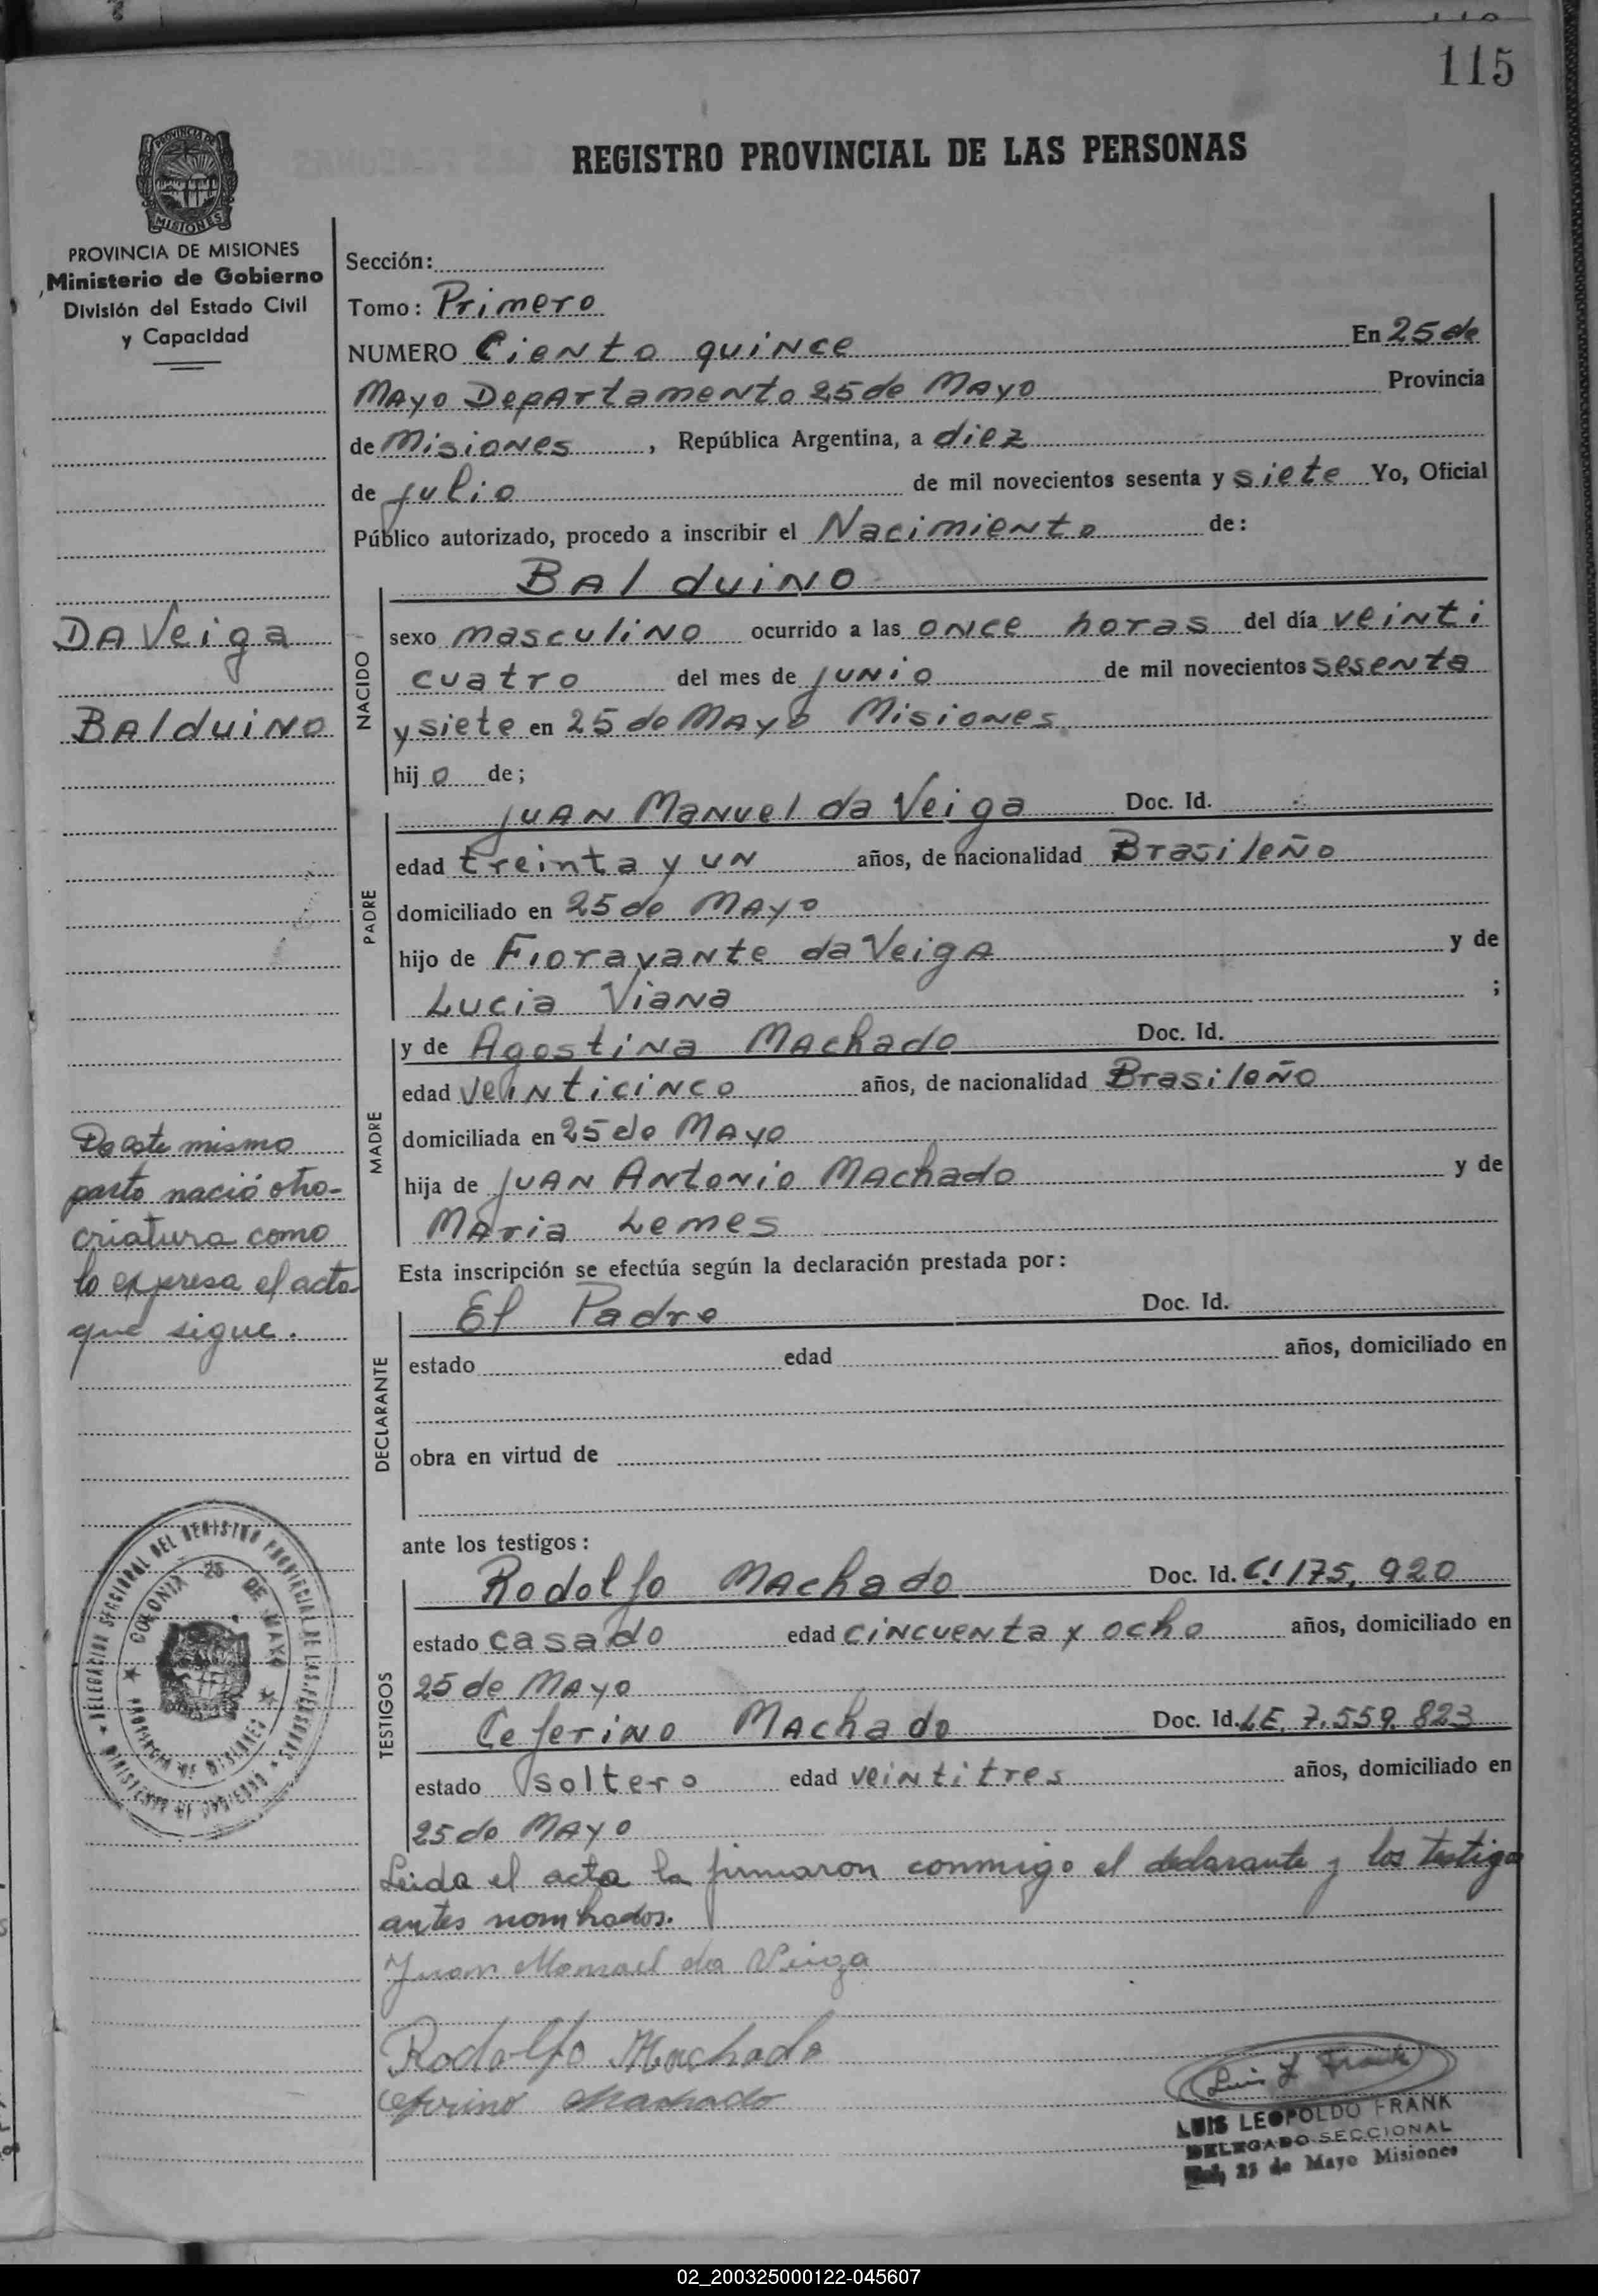 115
REGISTRO PROVINCIAL DE LAS PERSONAS
PROVINCIA DE MISIONES
Ministerio de Gobierno
División del Estado Civil
y Capacidad
DA Veiga
BAlduino
De este mismo
parto nació otra
criatura como
lo expresa el acta
que sigue.
DELEGACION SECCIONAL DEL REGISTRO PROVINCIAL DE LAS PERSONAS
MINISTERIO DE GOBIERNO
COLONIA 25 DE MAYO
PROVINCIA DE MISIONES
Sección:
Tomo: Primero
NUMERO Ciento quince En 25 de
Mayo Departamento 25 de Mayo Provincia
de Misiones, República Argentina, a diez
de julio de mil novecientos sesenta y siete Yo, Oficial
Público autorizado, procedo a inscribir el Nacimiento de:
BAlduino
NACIDO
sexo masculino ocurrido a las once horas del día veinti
cuatro del mes de junio de mil novecientos sesenta
y siete en 25 de Mayo Misiones
hijo de;
PADRE
Juan Manuel da Veiga Doc. Id.
edad treinta y un años, de nacionalidad Brasileño
domiciliado en 25 de Mayo
hijo de Fioravante da Veiga y de
Lucia Viana ;
MADRE
y de Agostina Machado Doc. Id.
edad veinticinco años, de nacionalidad Brasileño
domiciliada en 25 de Mayo
hija de Juan Antonio Machado y de
Maria Lemes
Esta inscripción se efectúa según la declaración prestada por:
DECLARANTE
El Padre Doc. Id.
estado edad años, domiciliado en
obra en virtud de
ante los testigos:
TESTIGOS
Rodolfo Machado Doc. Id. C.I 175,920
estado casado edad cincuenta y ocho años, domiciliado en
25 de Mayo
Ceferino Machado Doc. Id. LE. 7.559.823
estado soltero edad veintitres años, domiciliado en
25 de Mayo
Leida el acta la firmaron conmigo el declarante y los testigos
antes nombrados.
Juan Manuel da Veiga
Rodolfo Machado
Ceferino Machado
Luis L Frank
LUIS LEOPOLDO FRANK
DELEGADO SECCIONAL
25 de Mayo Misiones
02_200325000122-045607